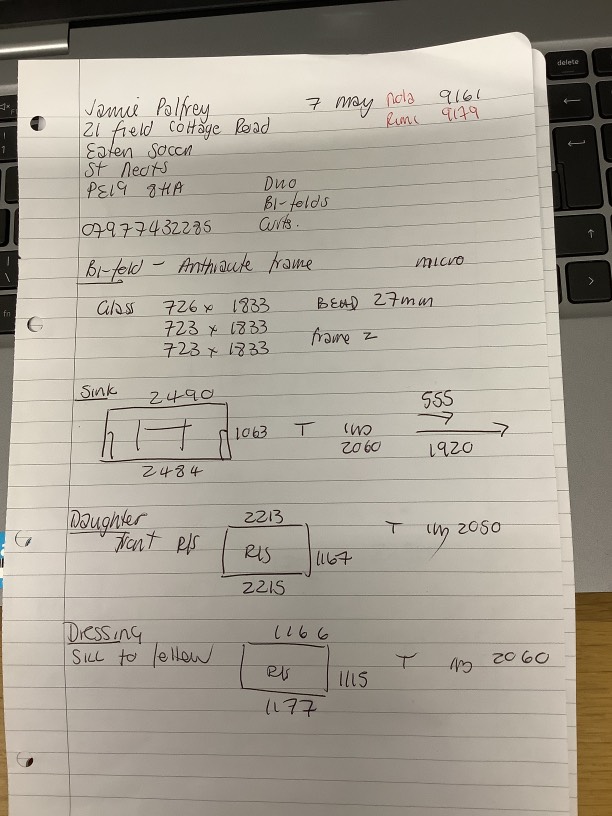 Jamie Palfrey 7 may Nola 9161
21 field Cottage Road Rimi 9179
Eaten Soccn
St neots
PE19 8HA Duo
Bi-folds
07977432285 Curts.
Bi-fold - Anthracite frame micro
Glass 726 x 1833 BEAD 27mm
723 x 1833 frame 2
723 x 1833
Sink
2490
1063 T 2060
555
1920
2484
Daughter
front R/S
2213
R/S
1167
T 2050
2215
Dressing
Sill to follow
1166
R/S
1115
T 2060
1177
delete
fn